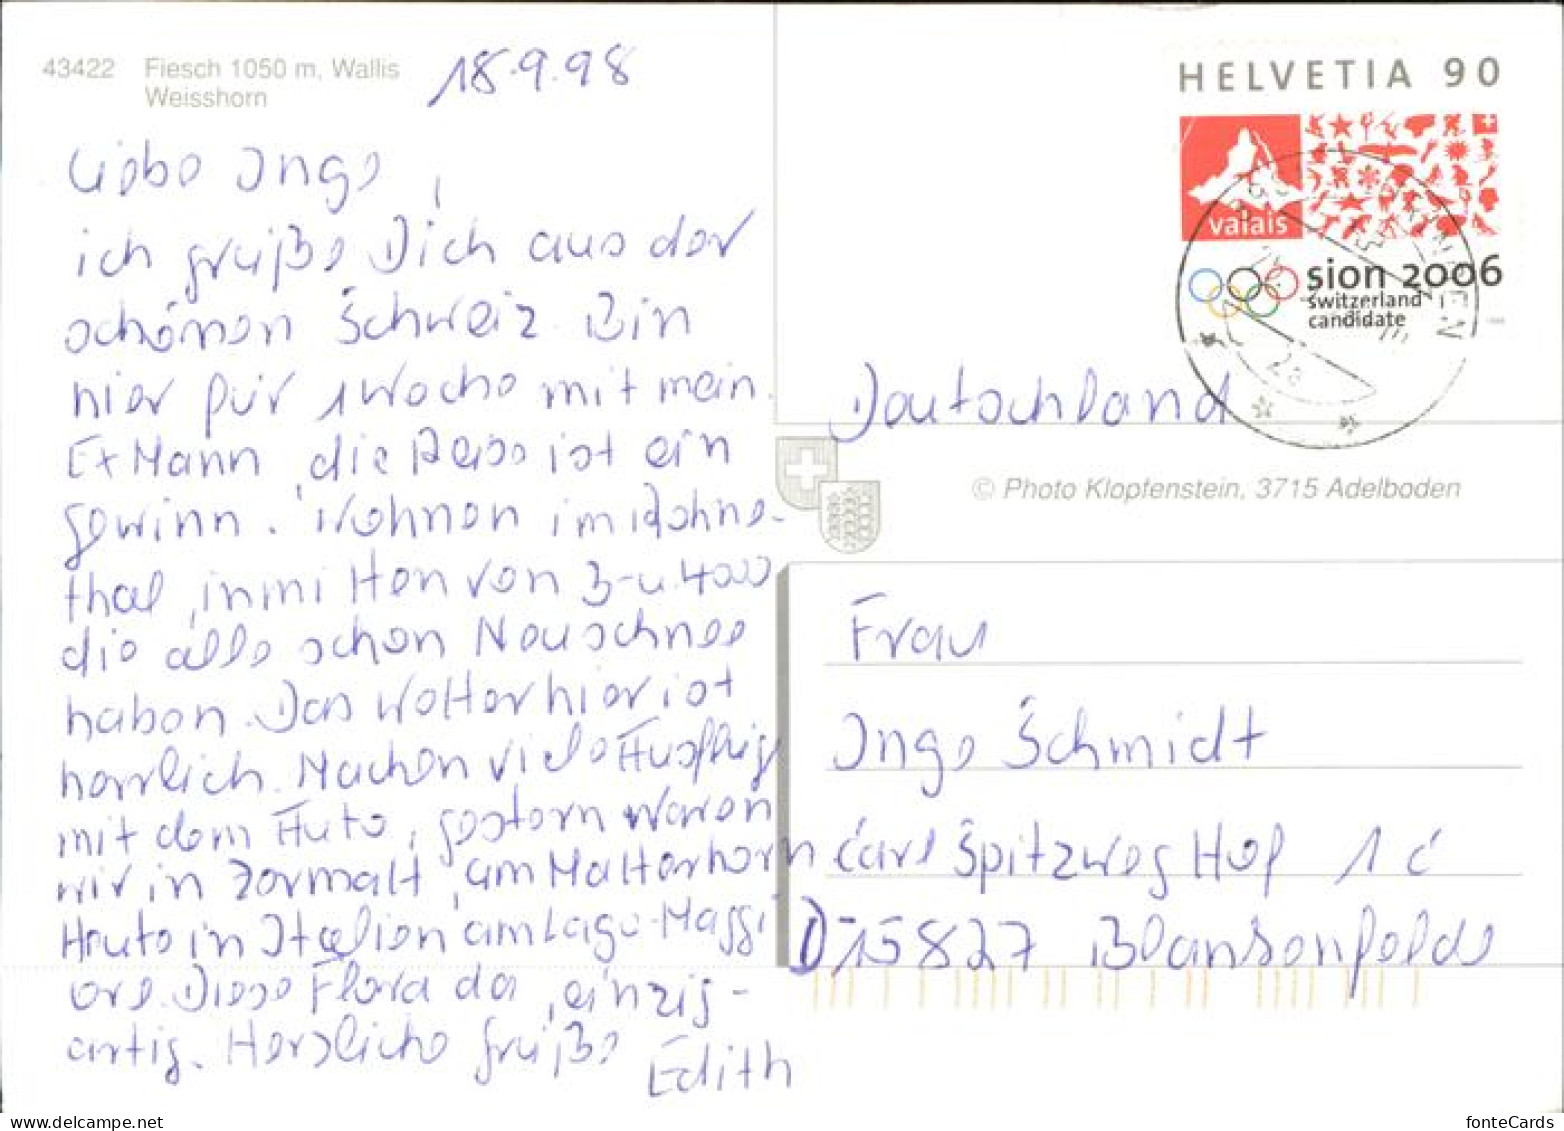 43422 Fiesch 1050 m, Wallis
Weisshorn
18.9.98
Liebe Inge,
ich grüße Dich aus der
schönen Schweiz. Bin
hier für 1 Woche mit mein.
Ex Mann, die Reise ist ein
gewinn. Wohnen im Rohne-
thal, inmitten von 3-u. 4000
die alle schon Neuschnee
haben. Das Wetter hier ist
herrlich. Machen viele Ausflüg
mit dem Auto, gestern waren
wir in Zermatt, am Matterhorn
Heute in Italien am Lago-Maggi
ore. Diese Flora da, einzig-
artig. Herzliche Grüße
Edith
HELVETIA 90
valais
sion 2006
switzerland
candidate
Deutschland
© Photo Klopfenstein, 3715 Adelboden
Frau
Inge Schmidt
Carl Spitzweg Hof 1 c
D-15827 Blankenfelde
fonteCards